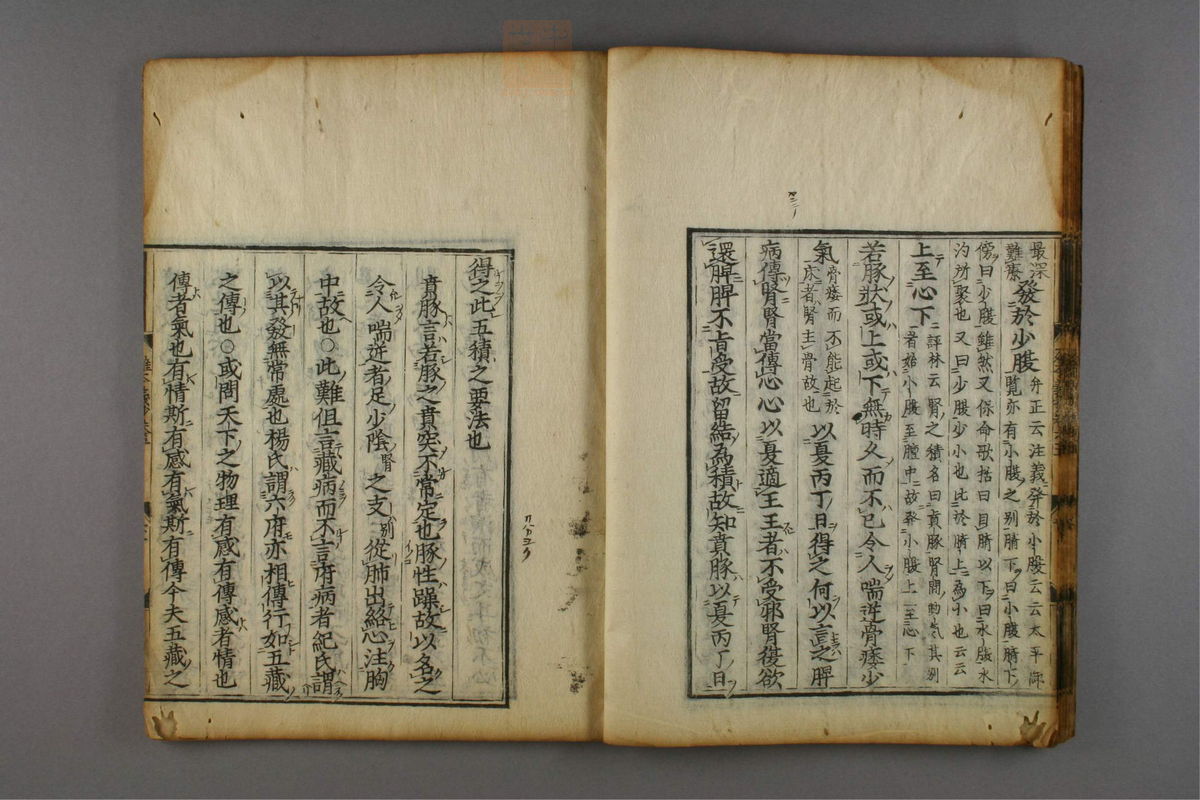 最深
難奈 發於少腹 弁正云注義發於小腹云云太平
一覧亦有小腹之別臍下曰小腹臍下
傍曰少腹雖然又保命歌括曰自臍以下曰水腹水
汋所聚也又曰少腹少小也此於臍上為小也云云
上至心下 評林云腎之積名曰賁豚腎間的氣其別
者始小腹至膻中故發小腹上至心下
若豚狀或上或下無時久而不已令人喘逆骨痿少
氣 骨痿而不能起於
床者腎主骨故也 以夏丙丁日得之何以言之脾
病傳腎腎當傳心心以夏適王王者不受邪腎復欲
還脾脾不肯受故留結為積故知賁豚以夏丙丁日
得之此五積之要法也
賁豚言若豚之賁突不常定也豚性躁故以名之
令人喘逆者足少陰腎之支別從肺出絡心注胸
中故也○此難但言藏病而不言府病者紀氏謂
以其發無常處也楊氏謂六府亦相傳行如五藏
之傳也○或問天下之物理有感有傳感者情也
傳者氣也有情斯有感有氣斯有傳今夫五藏之